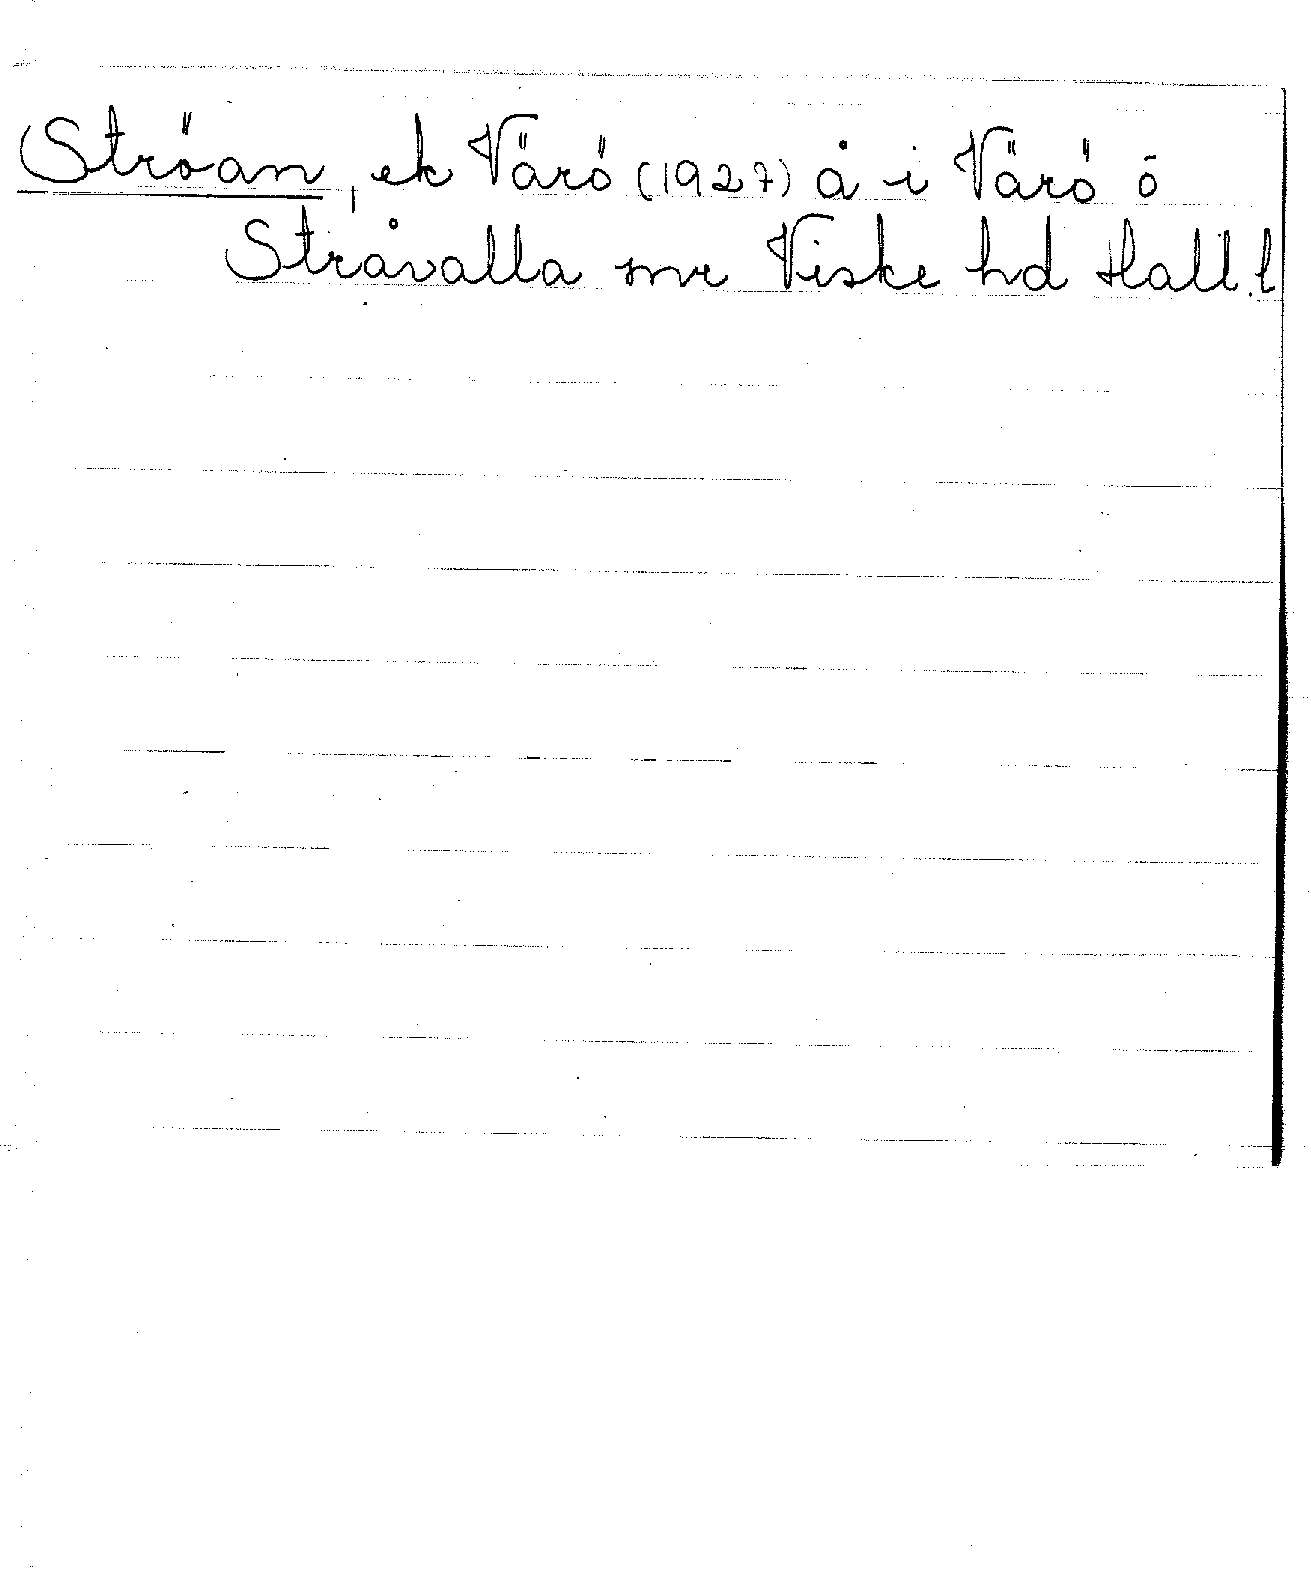 Ströan, ek Värö (1927) å i Värö o
Stråvalla snr Viske hd Hall.l